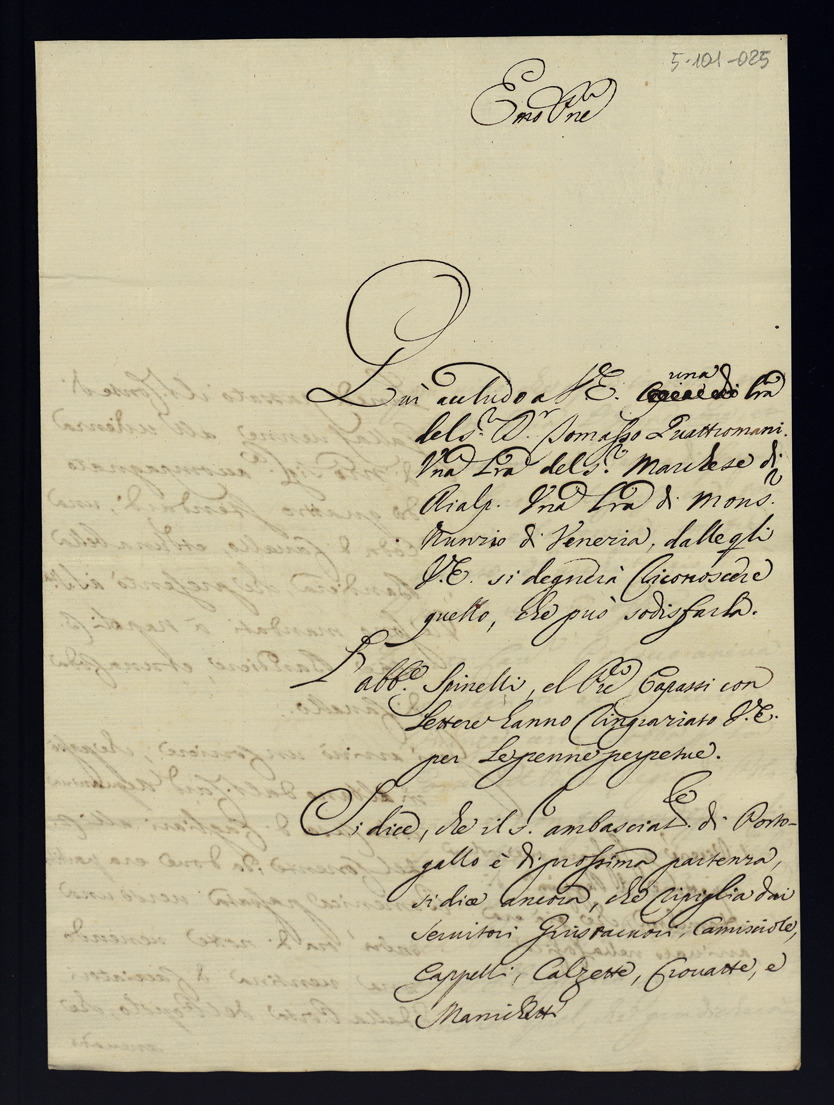 5-101-025
Emo Pne
Qui accludo a V.E. una Lra
del S.r D.r Tomasso Quattromani.
Vna Lra del S.r Marchese di
Rialp. Vna Lra di Mons.r
Nunzio di Venezia, dalle qli
V.E. si degnerà riconoscere
quello, che può sodisfarla.
L'abb.e Spinelli, el Pre Capassi con
Lettere hanno ringraziato V.E.
per Le penne perpetue.
Si dice, che il S.r ambasciat.re di Porto-
gallo è di prossima partenza,
si dice ancora, che ripiglia dai
Servitori Giustacuori, Camisciole,
Cappelli, Calzette, Crovatte, e
Manichetti